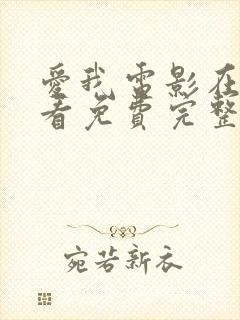 愛我雷影在
看免費完整
宛若新衣